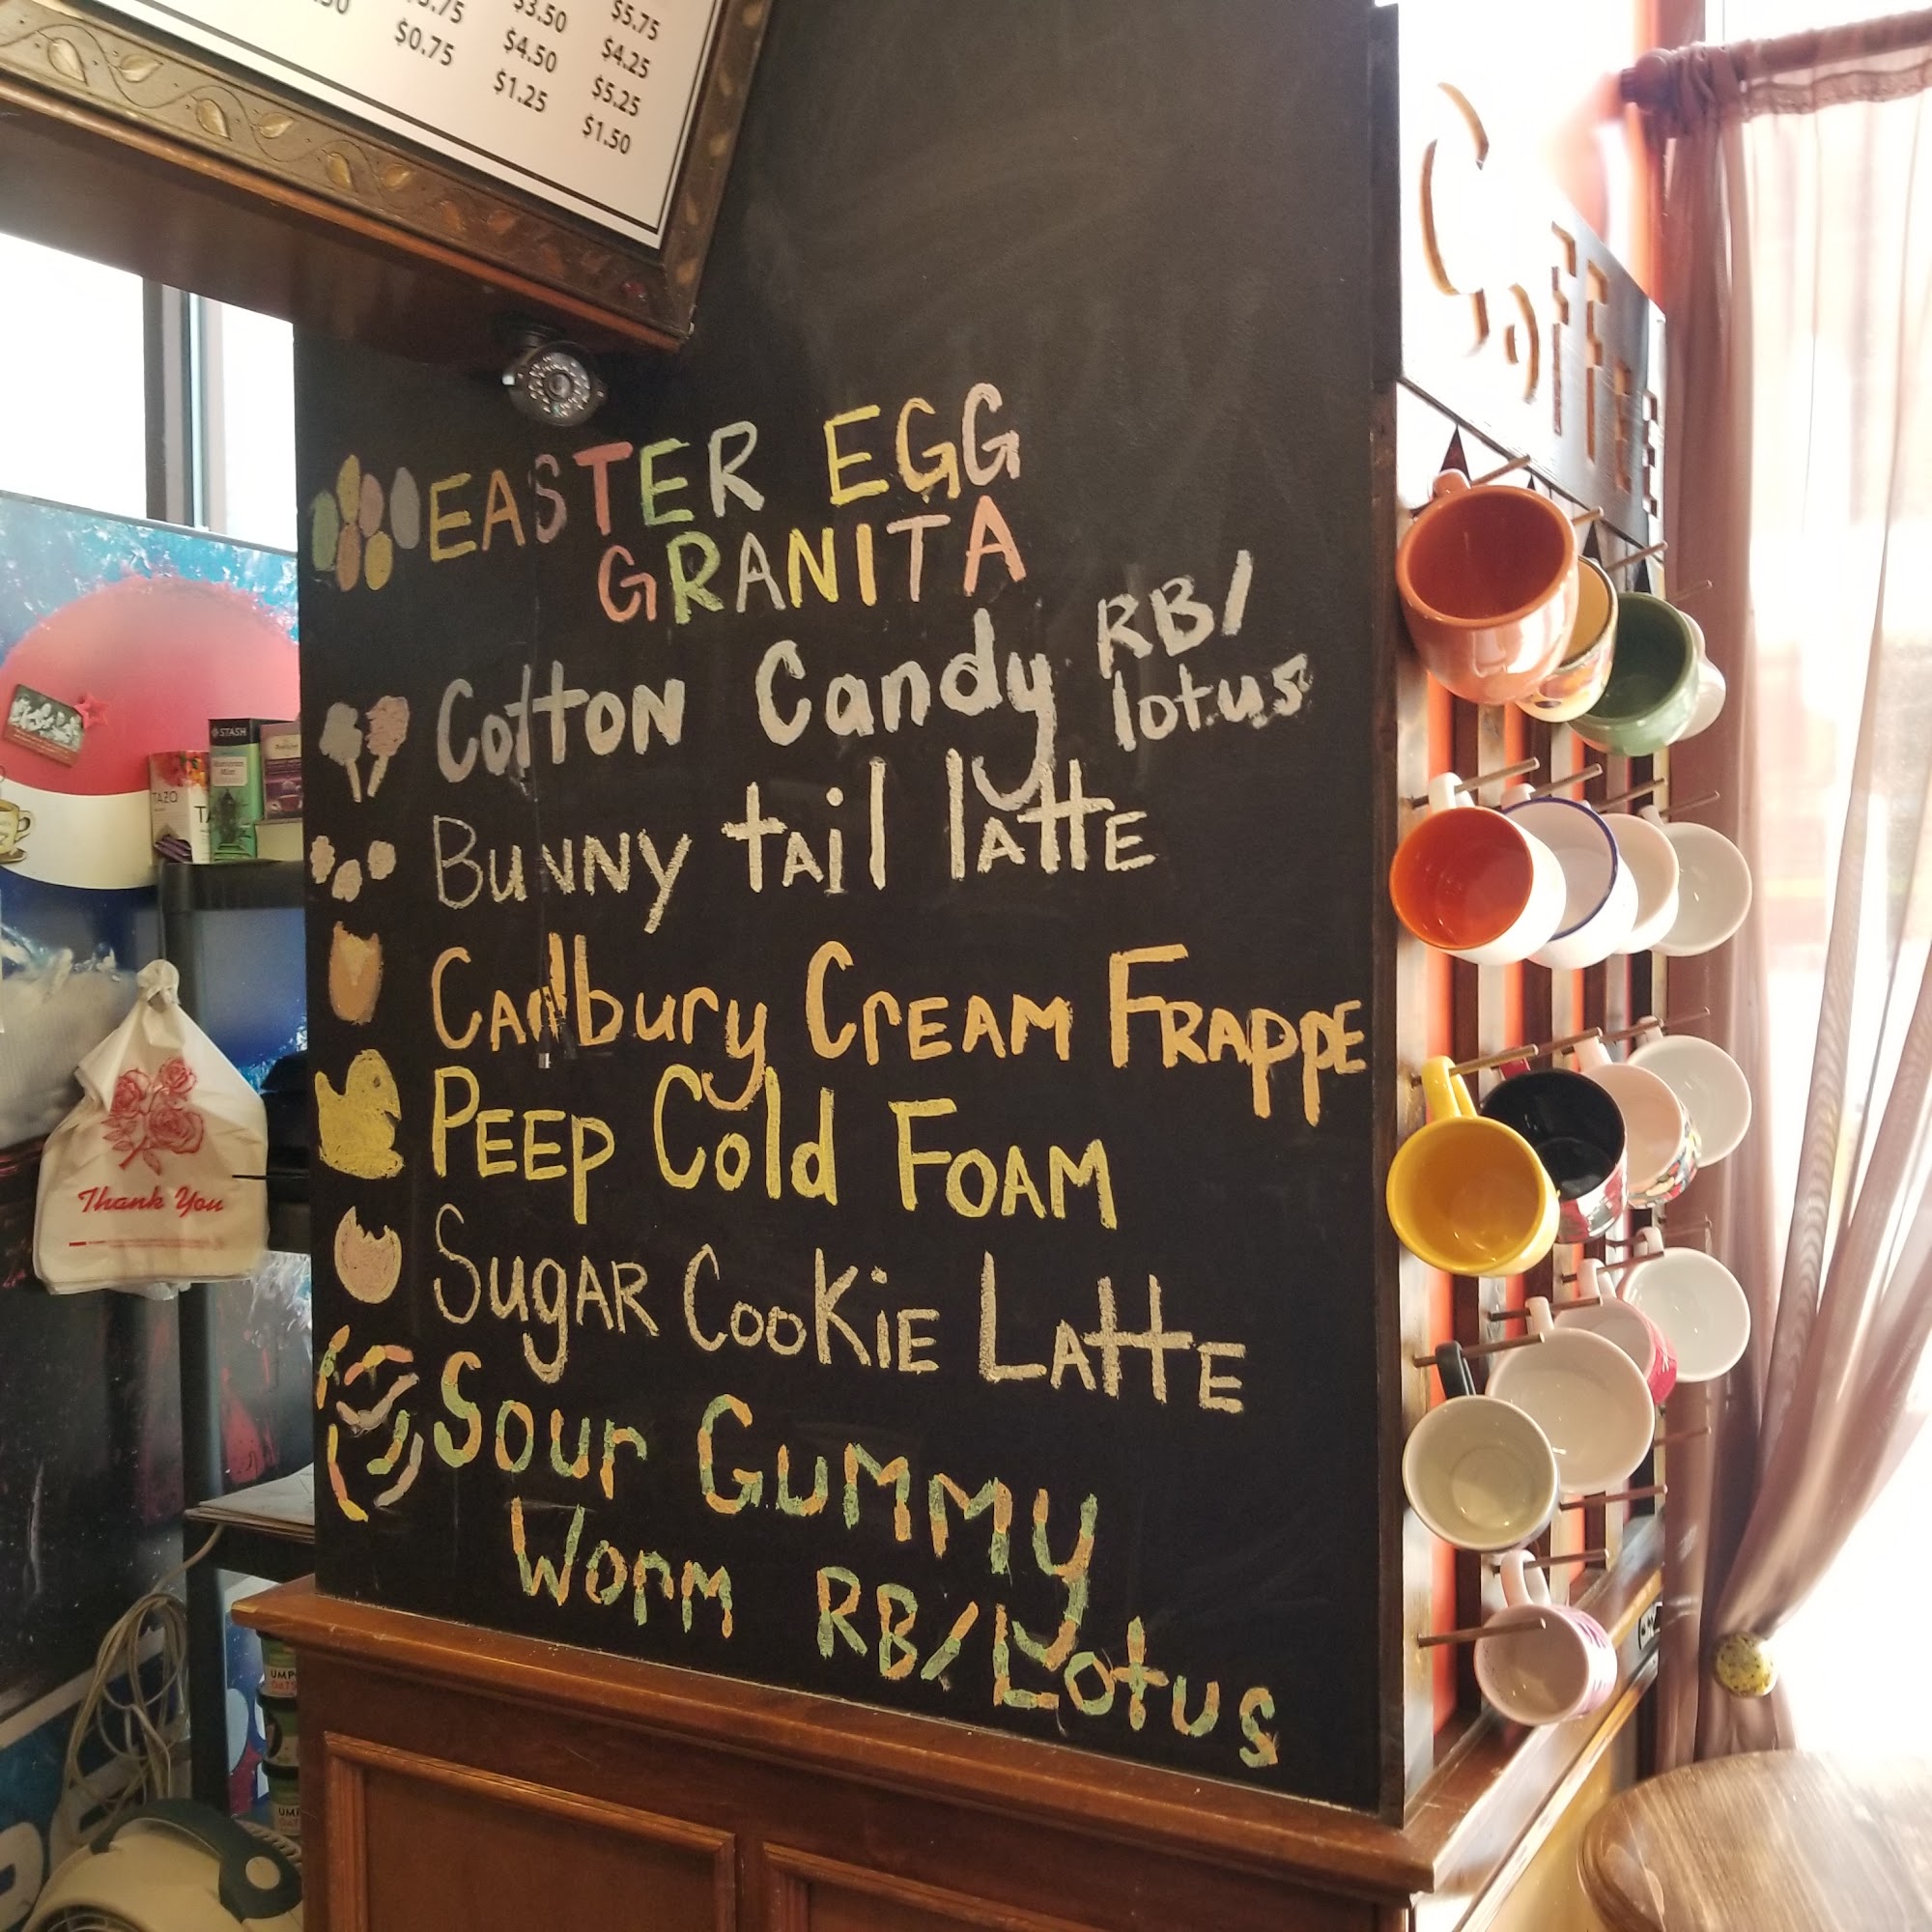 $3.50 $5.75
$4.50 $4.25
$0.75 $1.25 $5.25
$1.50
COFFEE
EASTER EGG
GRANITA
Cotton Candy RB/
lotus
Bunny tail latte
Cadbury Cream Frappe
Peep Cold Foam
Sugar Cookie Latte
Sour Gummy
Worm RB/Lotus
STASH
TAZO
Thank You